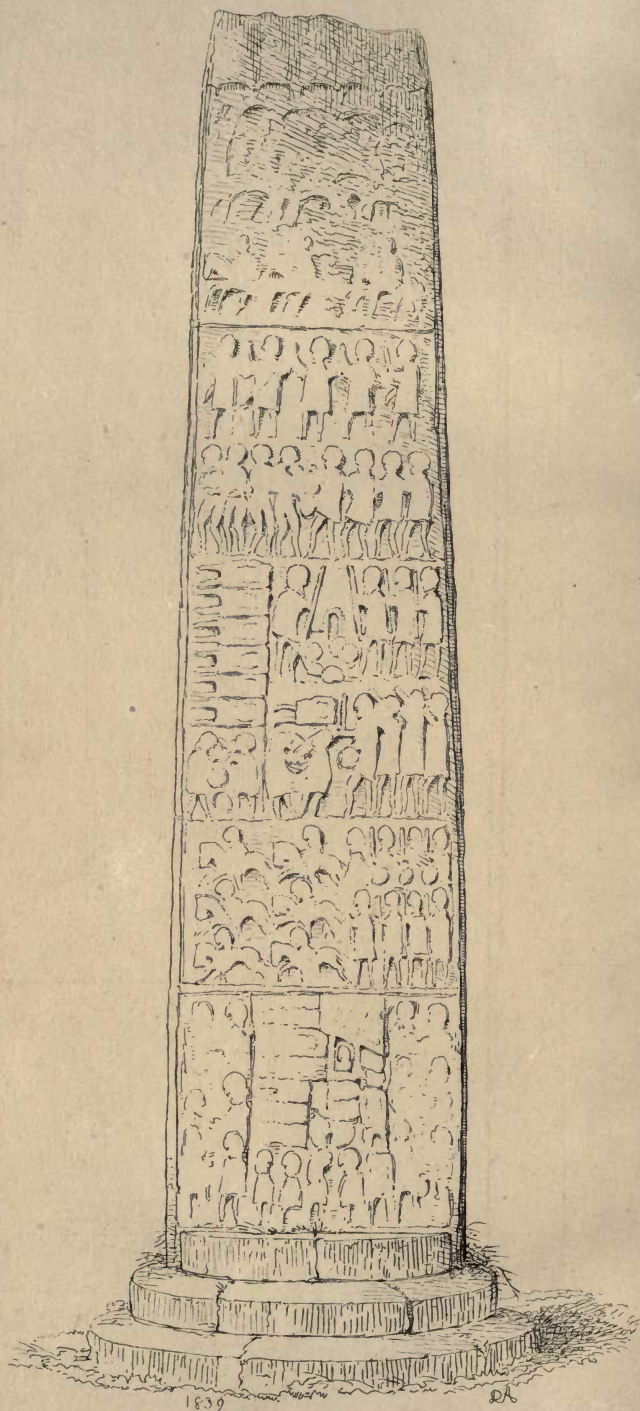 1839
RA